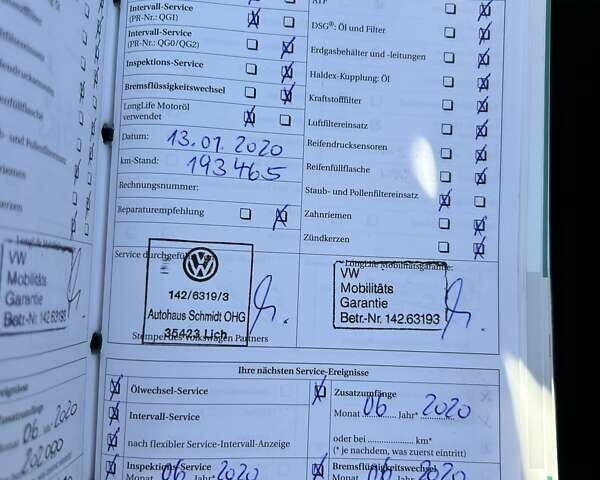 Intervall-Service
(PR-Nr.: QG1)
Intervall-Service
(PR-Nr.: QG0/QG2)
Inspektions-Service
Bremsflüssigkeitswechsel
LongLife Motoröl
verwendet
Datum: 13.01.2020
km-Stand: 193465
Rechnungsnummer:
Reparaturempfehlung
Service durchgeführt
VW
142/6319/3
Autohaus Schmidt OHG
35423 Lich
Stempel des Volkswagen Partners
ATF
DSG®: Öl und Filter
Erdgasbehälter und -leitungen
Haldex-Kupplung: Öl
Kraftstofffilter
Luftfiltereinsatz
Reifendrucksensoren
Reifenfüllflasche
Staub- und Pollenfiltereinsatz
Zahnriemen
Zündkerzen
LongLife Mobilitätsgarantie:
VW
Mobilitäts
Garantie
Betr-Nr. 142.63193
Ihre nächsten Service-Ereignisse
Ölwechsel-Service
Intervall-Service
nach flexibler Service-Intervall-Anzeige
Inspektions-Service
Monat 06 2020
Zusatzumfänge
Monat 06 Jahr* 2020
oder bei ........... km*
(* je nachdem, was zuerst eintritt)
Bremsflüssigkeitswechsel
Monat 06 2020
VW
Mobilitäts
Garantie
Betr-Nr. 142.63193
06 2020
202.000